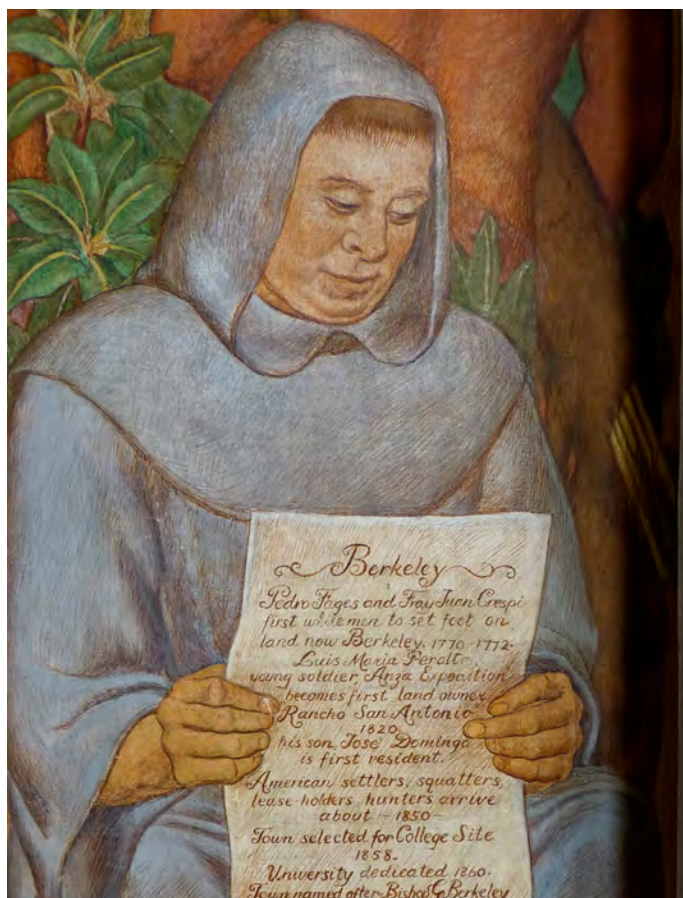 Berkeley
Pedro Fages and Fray Juan Crespi
first white men to set foot on
land now Berkeley, 1770-1772.
Luis Maria Peralta
young soldier, Anza Expedition
becomes first land owner
"Rancho San Antonio"
1820.
his son, José Domingo
is first resident.
American settlers, squatters,
lease-holders, hunters arrive
about - 1850 -
Town selected for College Site
1858.
University dedicated 1860.
Town named after Bishop G. Berkeley